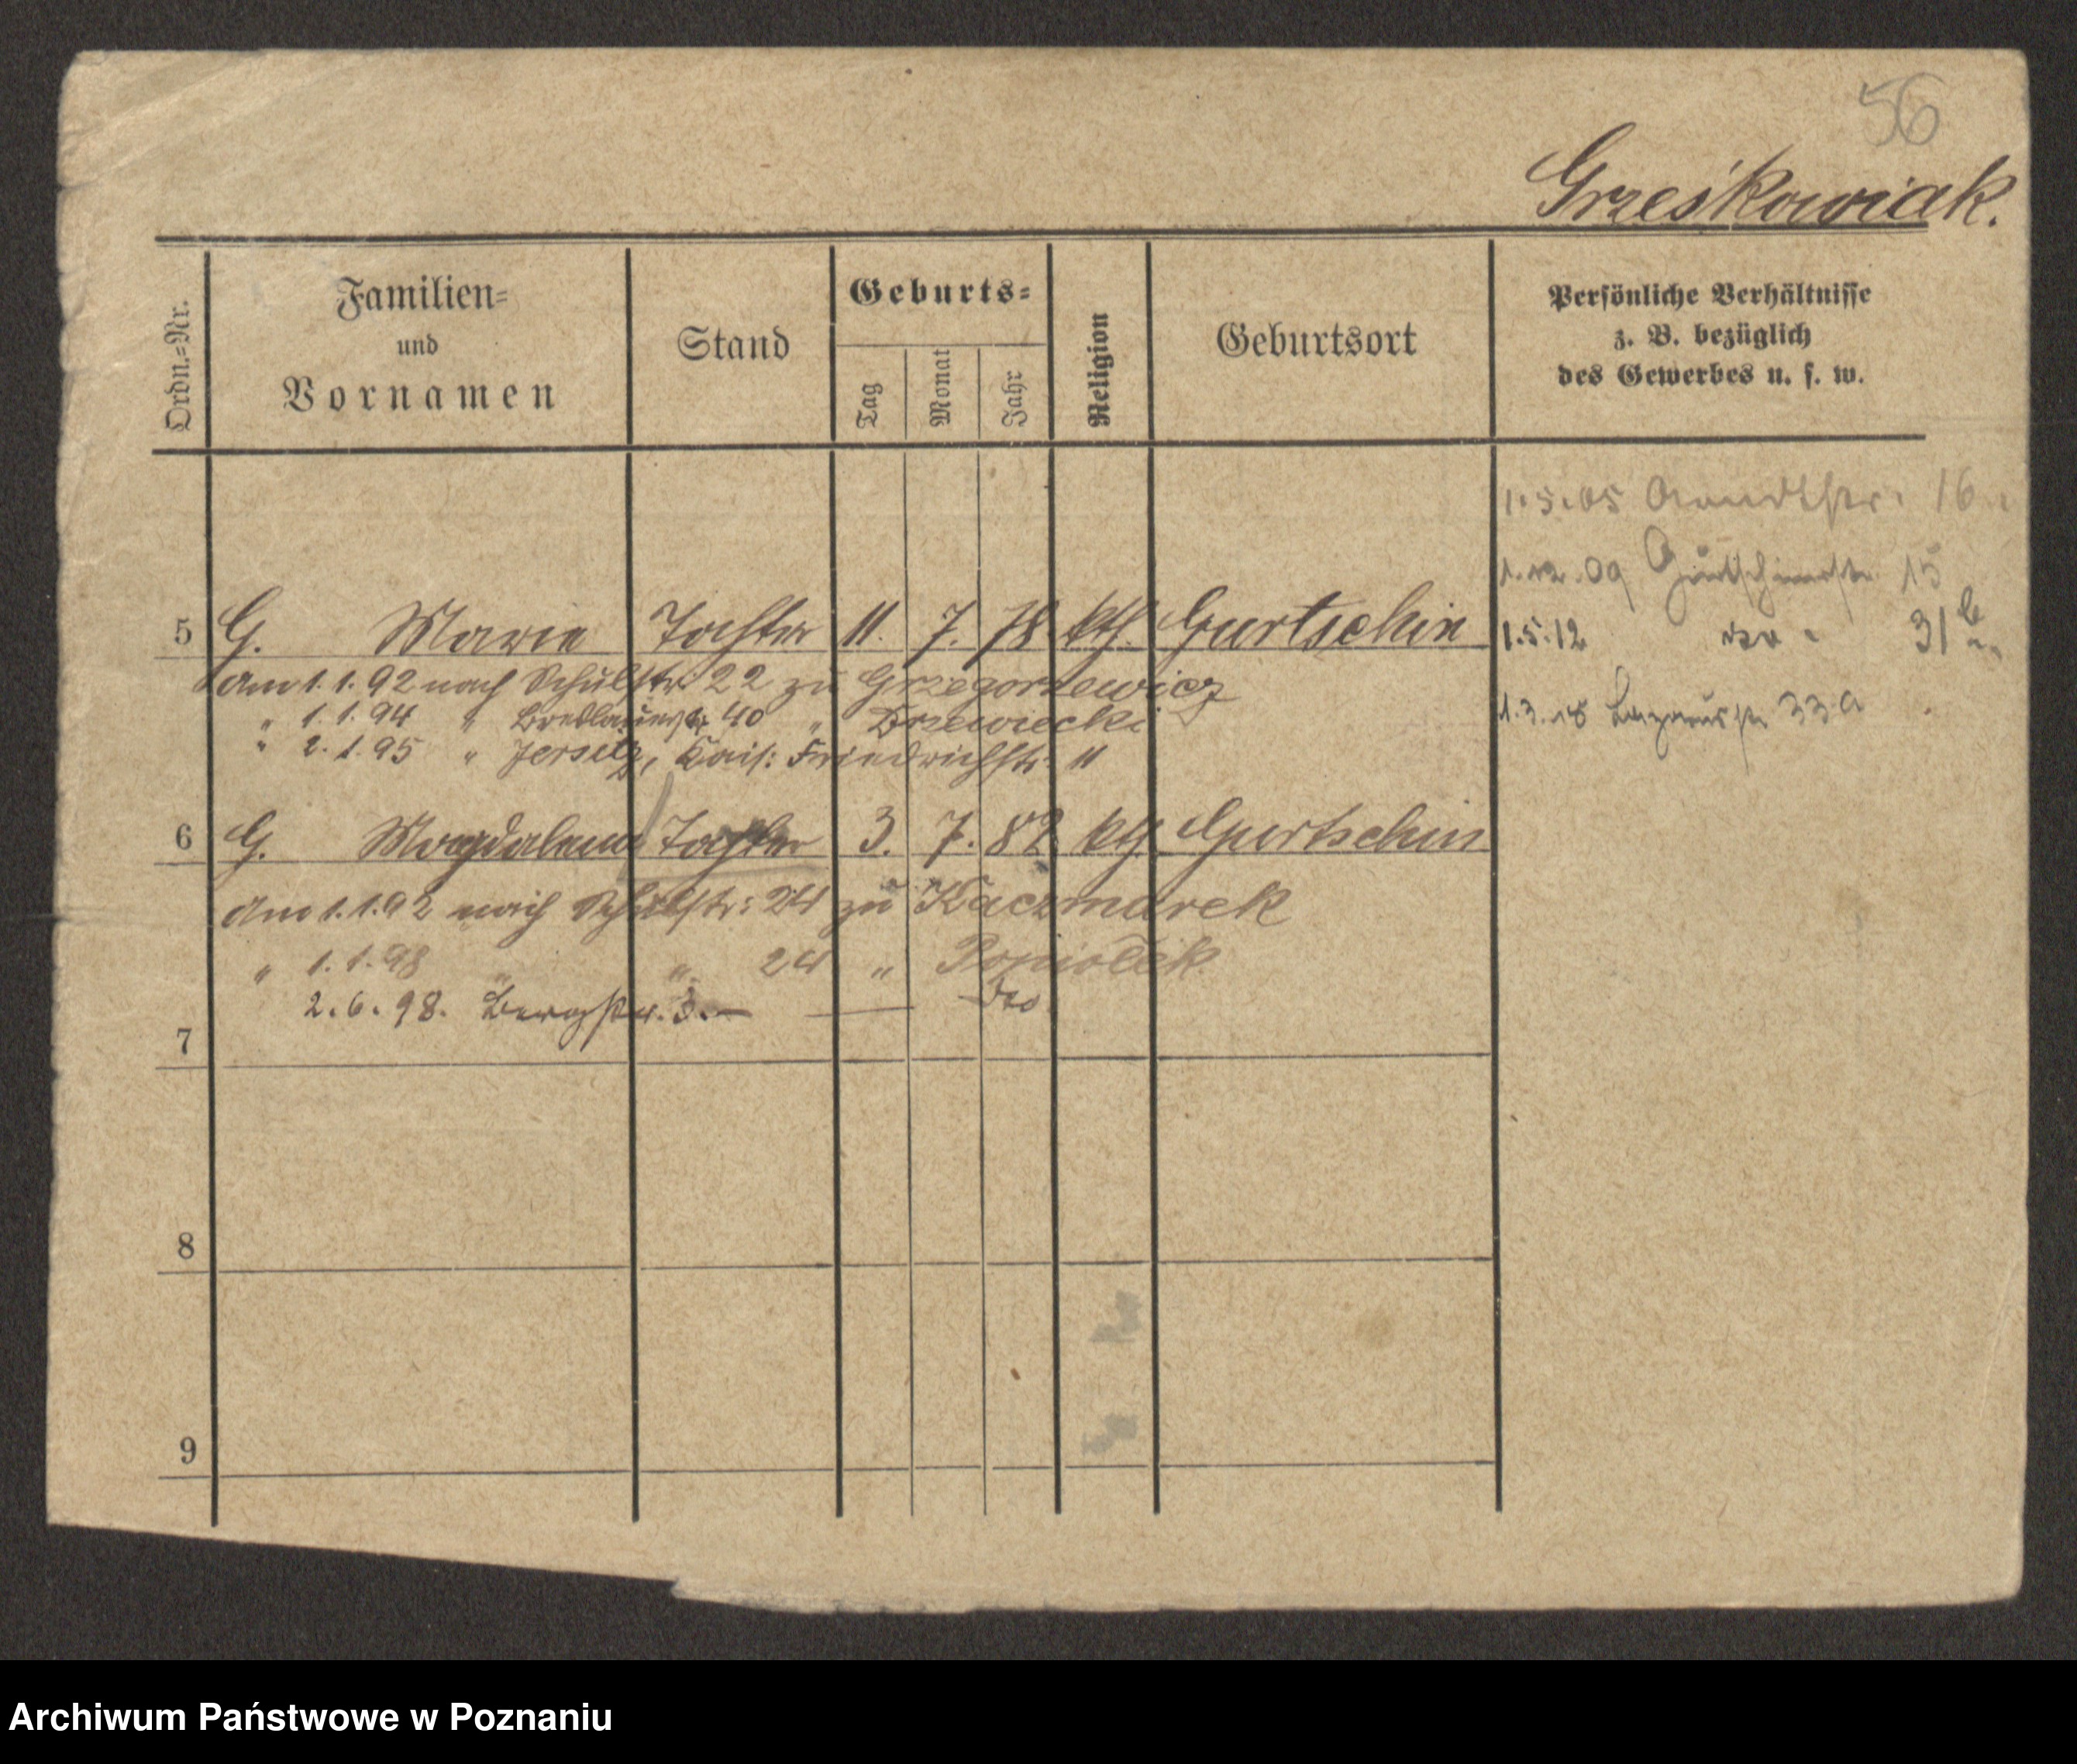 56
Grześkowiak.
Ordn.-Nr.
Familien-
und
Vornamen
Stand
Geburts-
Tag
Monat
Jahr
Religion
Geburtsort
Persönliche Verhältnisse
z. B. bezüglich
des Gewerbes u. s. w.
1.5.05 Arndtstr. 16
1.12.09 Gurtschinerstr. 15
1.5.12 31
1.3.18 Lazarusstr 33a
5 G. Marie Tochter 11. 7. 78 kth. Gurtschin
Am 1.1.92 nach Schulstr 22 zu Grzegorzewicz
" 1.1.94 " Breslauerstr 40 " Drzewiecki
" 2.1.95 " Jersitz, Kais: Friedrichstr. 11
6 G. Magdalena Tochter 3. 7. 82 kth. Gurtschin
Am 1.1.92 nach Schulstr: 24 zu Kaczmarek
" 1.1.98 " " 24 "
2.6.98. Bergstr. 3. —
7
8
9
Archiwum Państwowe w Poznaniu